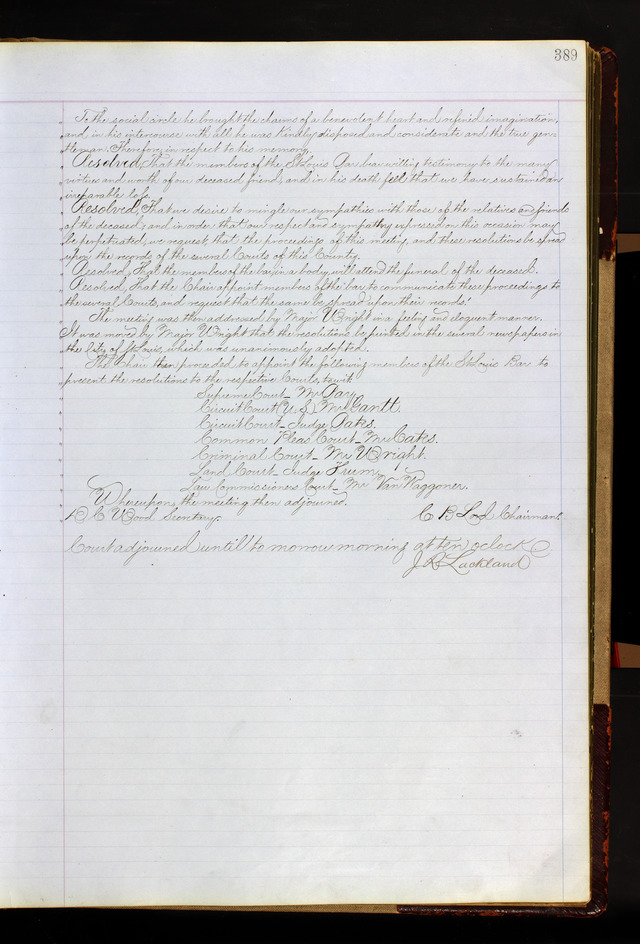 389
To the social circle he brought the charms of a benevolent heart and refined imagination,
and in his intercourse with all he was kindly disposed and considerate and the true gen
tleman. Therefore, in respect to his memory,
Resolved, That the members of the St Louis Bar bear willing testimony to the many
virtues and worth of our deceased friend, and in his death feel that we have sustained an
irreparable loss.
Resolved, That we desire to mingle our sympathies with those of the relatives and friends
of the deceased; and in order that our respect and sympathy expressed on this occasion may
be perpetuated, we request that the proceedings of this meeting, and these resolutions be spread
upon the records of the several Courts of this County.
Resolved, That the members of the bar, in a body, will attend the funeral of the deceased.
Resolved, That the Chair appoint members of the bar to communicate these proceedings to
the several Courts, and request that the same be spread upon their records.
The meeting was then addressed by Major Wright in a feeling and eloquent manner.
It was moved by Major Wright that the resolutions be printed in the several newspapers in
the City of St Louis, which was unanimously adopted.
The Chair then proceeded to appoint the following members of the St Louis Bar to
present the resolutions to the respective Courts, towit:
Supreme Court _ Mr Day.
Circuit Court (U. S.) Mr Gantt.
Circuit Court _ Judge Oakes.
Common Pleas Court _ Mr Cates.
Criminal Court _ Mr Wright.
Land Court _ Judge Krum.
Law Commissioners Court _ Mr Van Waggoner.
Whereupon, the meeting then adjourned.
D C Wood Secretary. C B Lord Chairman.
Court adjourned until to morrow morning at ten oclock
J R Lackland